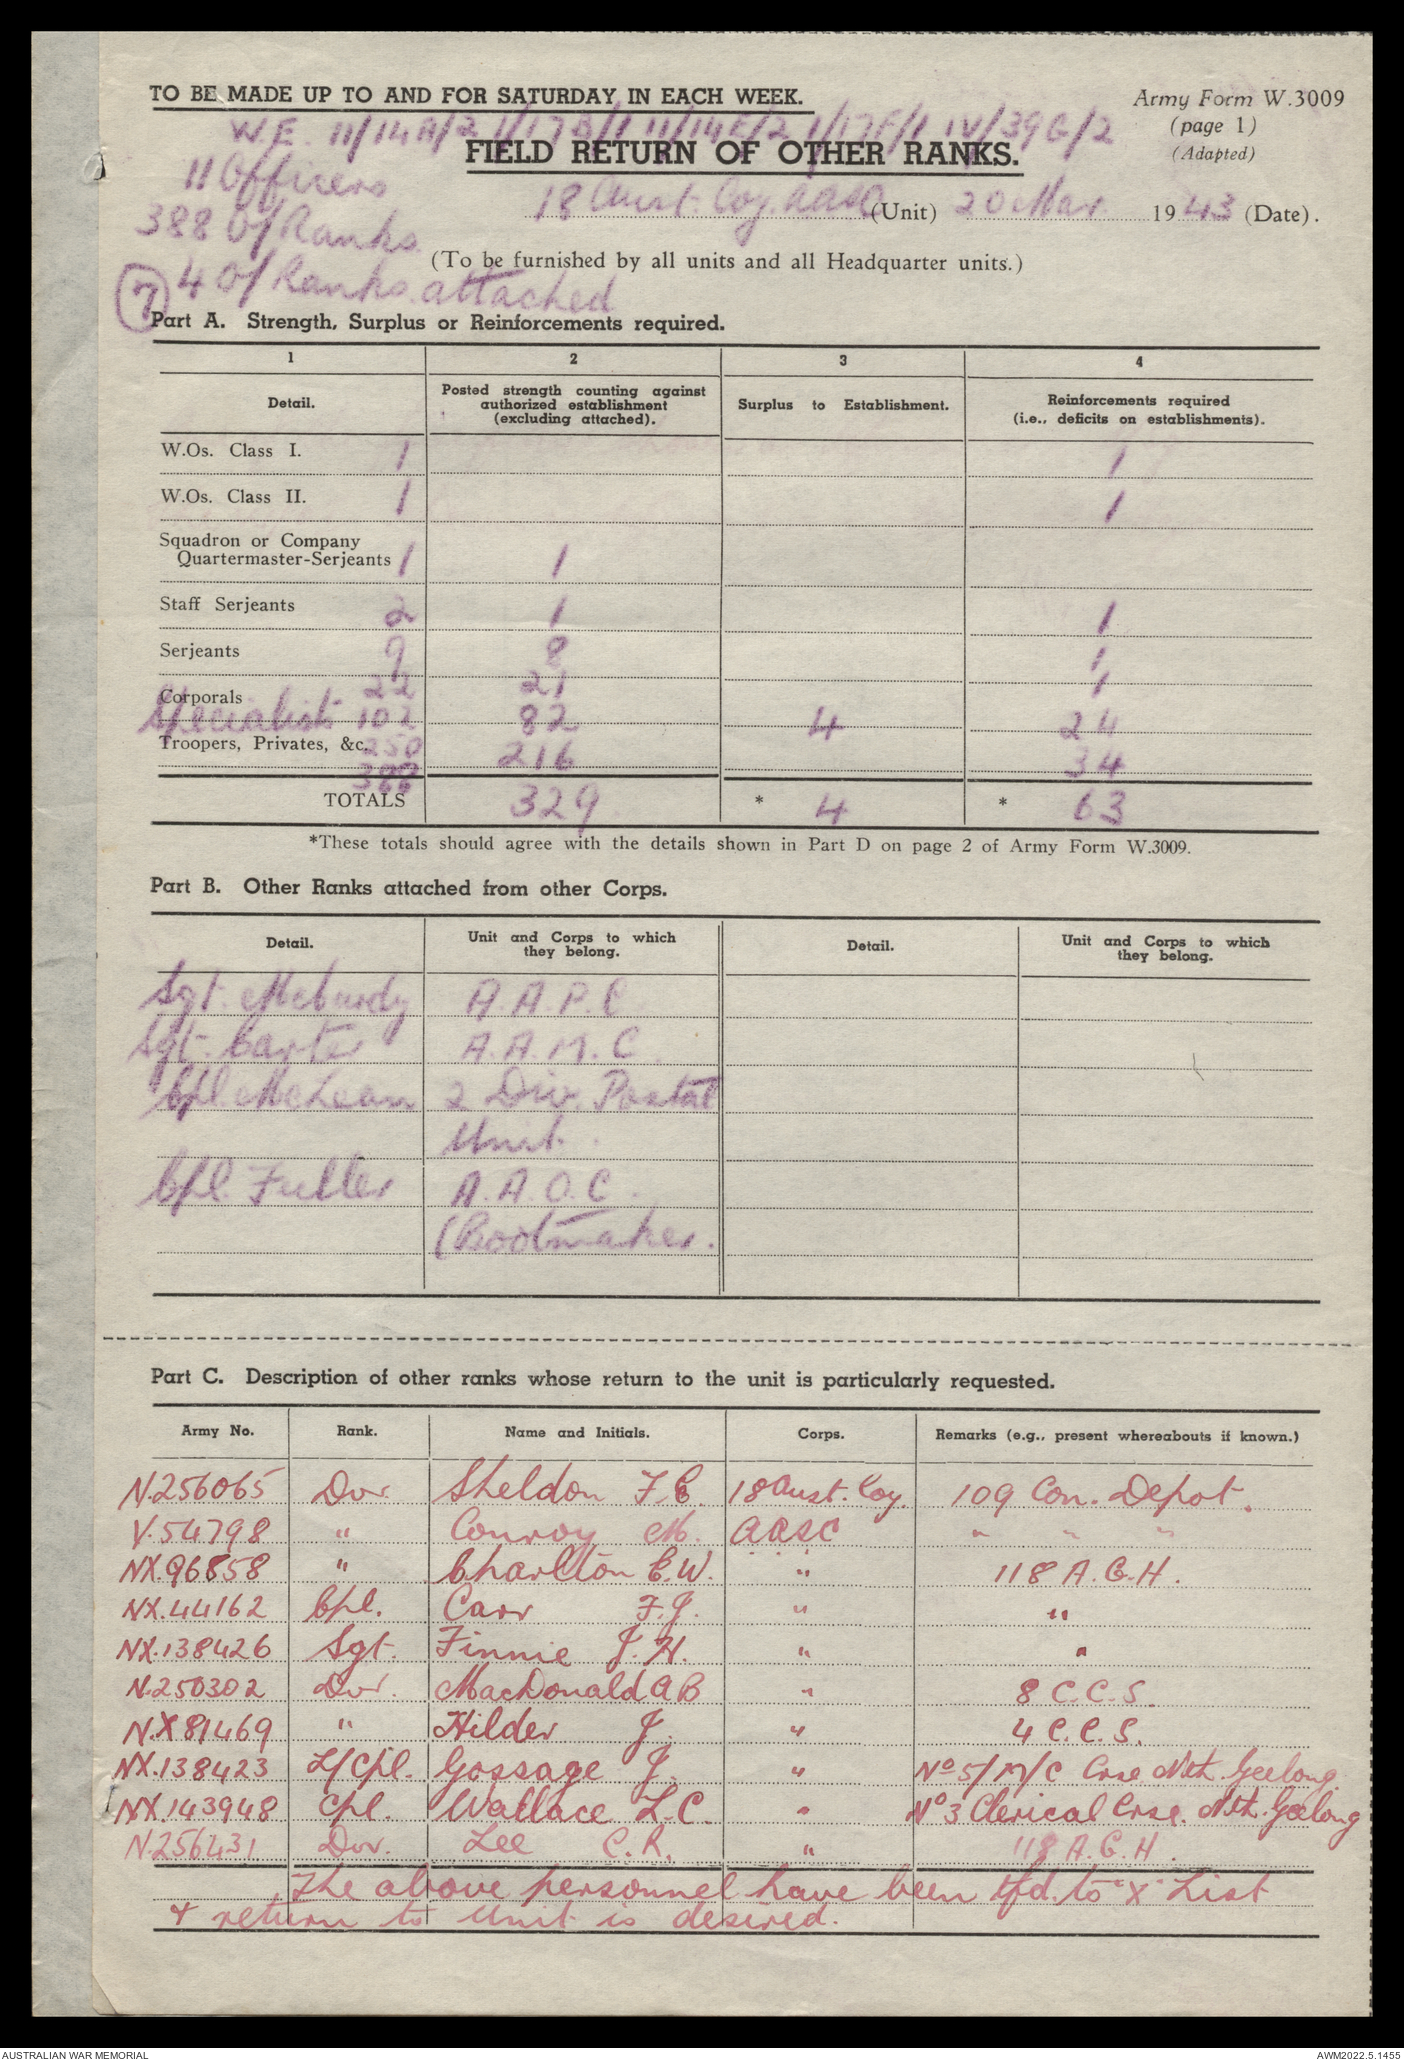 TO BE MADE UP TO AND FOR SATURDAY IN EACH WEEK.
Army Form W.3009
(page 1)
(Adapted)
W.E. 11/14A/2 1/17B/1 11/14E/2 1/17F/1 IV/39G/2
FIELD RETURN OF OTHER RANKS.
11 Officers
18 Aust. Coy. AASC (Unit) 20 Mar. 1943 (Date).
388 O/Ranks
(To be furnished by all units and all Headquarter units.)
7 4 O/Ranks attached
Part A. Strength, Surplus or Reinforcements required.
1 2 3 4
Detail. Posted strength counting against authorized establishment (excluding attached). Surplus to Establishment. Reinforcements required (i.e., deficits on establishments).
W.Os. Class I. 1 1
W.Os. Class II. 1 1
Squadron or Company
Quartermaster-Serjeants 1 1
Staff Serjeants 2 1 1
Serjeants 9 8 1
Corporals 22 21 1
Specialists 102 82 4 24
Troopers, Privates, &c. 250 216 34
388
TOTALS 329 * 4 * 63
*These totals should agree with the details shown in Part D on page 2 of Army Form W.3009.
Part B. Other Ranks attached from other Corps.
Detail. Unit and Corps to which they belong. Detail. Unit and Corps to which they belong.
Sgt. McCurdy A.A.P.C
Sgt. Carter A.A.M.C.
Cpl. McLean 2 Div. Postal
Unit.
Cpl. Fuller A.A.O.C.
(Bootmaker.
Part C. Description of other ranks whose return to the unit is particularly requested.
Army No. Rank. Name and Initials. Corps. Remarks (e.g., present whereabouts if known.)
N.256065 Dvr Sheldon F.C. 18 Aust. Coy. 109 Con. Depot.
V.54798 " Conroy M. AASC " " "
NX.96858 " Charlton C.W. " 118 A.G.H.
NX.44162 Cpl. Carr F.J. " "
NX.138426 Sgt. Finnie J.H. " "
N.250302 Dvr. MacDonald A B " 8 C.C.S.
N.X81469 " Hilder J. " 4 C.C.S.
NX.138423 L/Cpl. Gossage J. " No 5/M/C Crse Nth. Geelong.
NX.143948 Cpl. Wallace L.C. " No 3 Clerical Crse. Nth. Geelong
N.256431 Dvr. Lee C.R. " 118 A.G.H.
The above personnel have been tfd. to "X" List
& return to Unit is desired.
AUSTRALIAN WAR MEMORIAL
AWM2022.5.1455